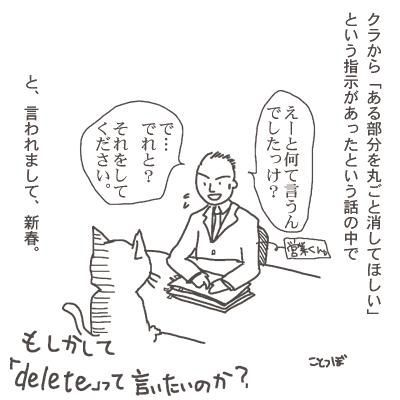 クラから「ある部分を丸ごと消してほしい」
という指示があったという話の中で
えーと何て言うん
でしたっけ？
で…
でれと？
それをして
ください。
営業くん。
と、言われまして、新春。
もしかして
「delete」って言いたいのか？
ことつぼ